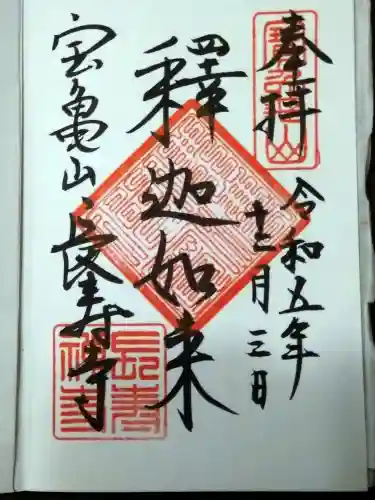 奉拝
令和五年
十二月三日
釋迦如来
宝亀山
長寿寺
長寿禅寺